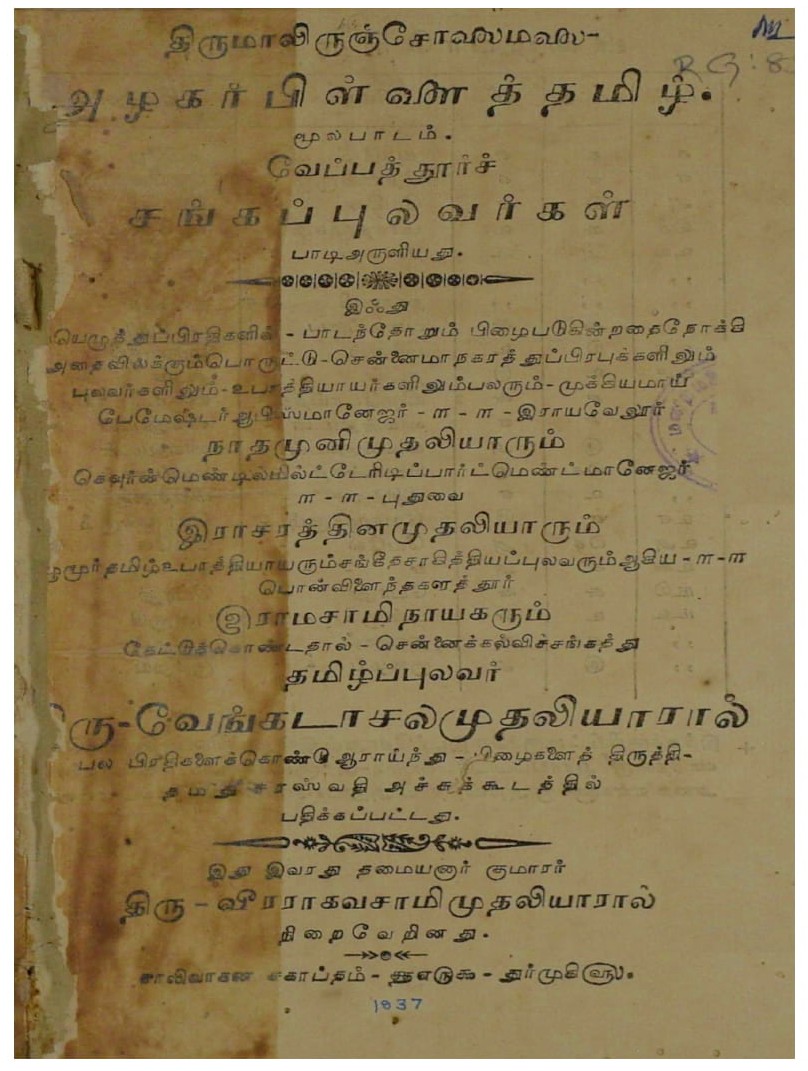 திருமாலிருஞ்சோலைமலை-
RG:8
அழகர்பிள்ளைத்தமிழ்.
மூலபாடம்.
வேப்பத்தூர்ச்
சங்கப்புலவர்கள்
பாடிஅருளியது.
இஃது
யெழுத்துப்பிரதிகளின் - பாடந்தோறும் பிழைபடுகின்றதைநோக்கி
அதைவிலக்கும்பொருட்டு-சென்னைமாநகரத்துப்பிரபுக்களிலும்
புலவர்களிலும்-உபாத்தியாயர்களிலும்பலரும்-முக்கியமாய்
பேமேஷ்டர்ஆபிஸ்மானேஜர் - ௱ - ௱ - இராயவேலூர்
நாதமுனிமுதலியாரும்
௱ - ௱ - புதுவை
இராசரத்தினமுதலியாரும்
தமிழ்உபாத்தியாயரும்சங்கீதசாகித்தியப்புலவரும்ஆகிய - ௱-௱
பொன்விளைந்தகளத்தூர்
இராமசாமிநாயகரும்
கேட்டுக்கொண்டதால் - சென்னைக்கல்விச்சங்கத்து
தமிழ்ப்புலவர்
திரு-வேங்கடாசலமுதலியாரால்
பல பிரதிகளைக்கொண்டு ஆராய்ந்து - பிழைகளைத் திருத்தி-
தமது சரஸ்வதி அச்சுக்கூடத்தில்
பதிக்கப்பட்டது.
இது இவரது தமையனார் குமாரர்
திரு - வீரராகவசாமிமுதலியாரால்
நிறைவேறினது.
சாலிவாகன சகாப்தம் - துர்முகி௵.
1837